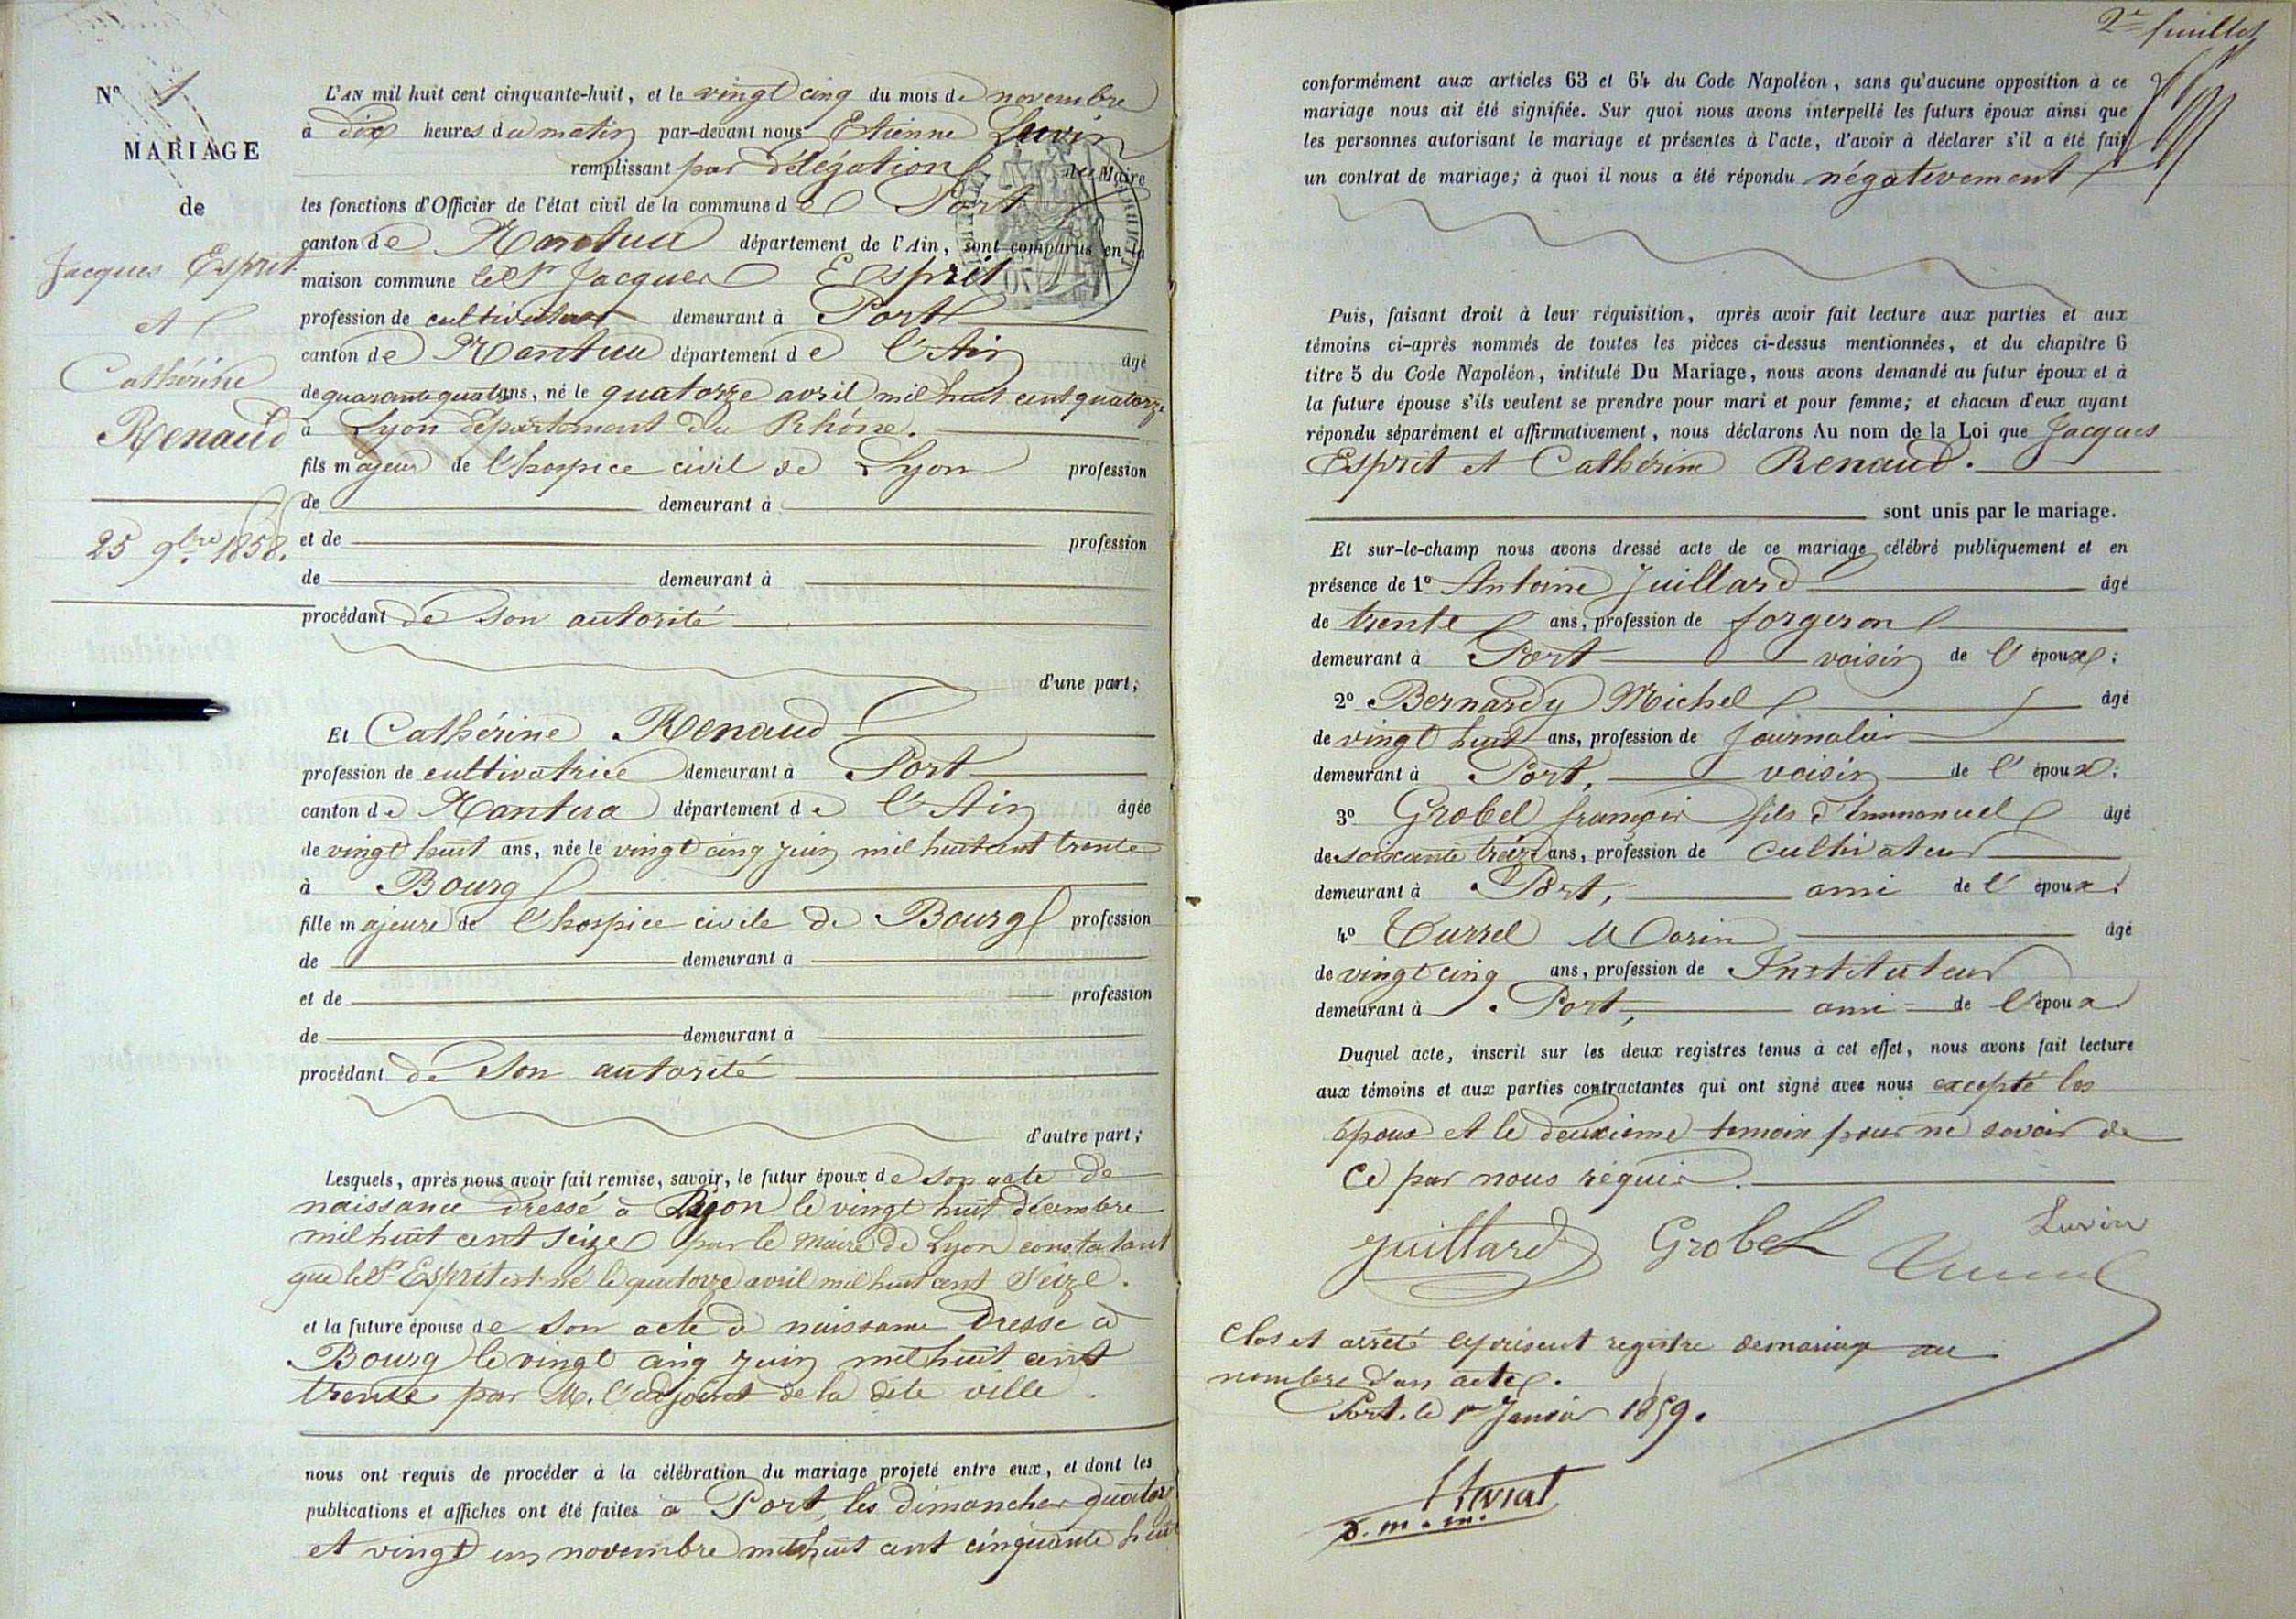 N° 1
MARIAGE
de
Jacques Esprit
et
Cathérine
Renaud
25 9bre 1858.
L'AN mil huit cent cinquante-huit, et le vingt cinq du mois de novembre
à dix heures du matin par-devant nous Etienne Luvin
remplissant par délégation du Maire
les fonctions d'Officier de l'état civil de la commune de Port
canton de Nantua département de l'Ain, sont comparus en la
maison commune le Sr Jacques Esprit
profession de cultivateur demeurant à Port
canton de Nantua département de l'Ain âgé
de quarante quatre ans, né le quatorze avril mil huit cent quatorze
à Lyon département du Rhône.
fils majeur de l'hospice civil de Lyon profession
de demeurant à
et de profession
de demeurant à
procédant de son autorité
d'une part;
Et Cathérine Renaud
profession de cultivatrice demeurant à Port
canton de Nantua département de l'Ain âgée
de vingt huit ans, née le vingt cinq juin mil huit cent trente
à Bourg
fille majeure de l'hospice civile de Bourg profession
de demeurant à
et de profession
de demeurant à
procédant de son autorité
d'autre part;
Lesquels, après nous avoir fait remise, savoir, le futur époux de son acte de
naissance dressé à Lyon le vingt huit décembre
mil huit cent seize par le maire de Lyon constatant
que le Sr Esprit est né le quatorze avril mil huit cent seize.
et la future épouse de son acte de naissance dressé à
Bourg le vingt cinq juin mil huit cent
trente par M. l'adjoint de la dite ville.
nous ont requis de procéder à la célébration du mariage projeté entre eux, et dont les
publications et affiches ont été faites à Port, les dimanches quatorze
et vingt un novembre mil huit cent cinquante huit
2e feuillet
conformément aux articles 63 et 64 du Code Napoléon, sans qu'aucune opposition à ce
mariage nous ait été signifiée. Sur quoi nous avons interpellé les futurs époux ainsi que
les personnes autorisant le mariage et présentes à l'acte, d'avoir à déclarer s'il a été fait
un contrat de mariage; à quoi il nous a été répondu négativement
Puis, faisant droit à leur réquisition, après avoir fait lecture aux parties et aux
témoins ci-après nommés de toutes les pièces ci-dessus mentionnées, et du chapitre 6
titre 5 du Code Napoléon, intitulé Du Mariage, nous avons demandé au futur époux et à
la future épouse s'ils veulent se prendre pour mari et pour femme; et chacun d'eux ayant
répondu séparément et affirmativement, nous déclarons Au nom de la Loi que Jacques
Esprit et Cathérine Renaud.
sont unis par le mariage.
Et sur-le-champ nous avons dressé acte de ce mariage célébré publiquement et en
présence de 1° Antoine Juillard âgé
de trente ans, profession de forgeron
demeurant à Port voisin de l'époux;
2° Bernardy Michel âgé
de vingt huit ans, profession de Journalier
demeurant à Port, voisin de l'époux;
3° Grobel françois fils d'Emmanuel âgé
de soixante treize ans, profession de cultivateur
demeurant à Port, ami de l'époux;
4° Turrel Marin âgé
de vingt cinq ans, profession de Instituteur
demeurant à Port, ami de l'époux
Duquel acte, inscrit sur les deux registres tenus à cet effet, nous avons fait lecture
aux témoins et aux parties contractantes qui ont signé avec nous excepté les
époux et le deuxième temoin pour ne savoir de
ce par nous réquis.
Juillard Grobel Luvin
Clos et arrêté le présent registre de mariage au
nombre d'un acte.
Port, le 1er Janvier 1859.